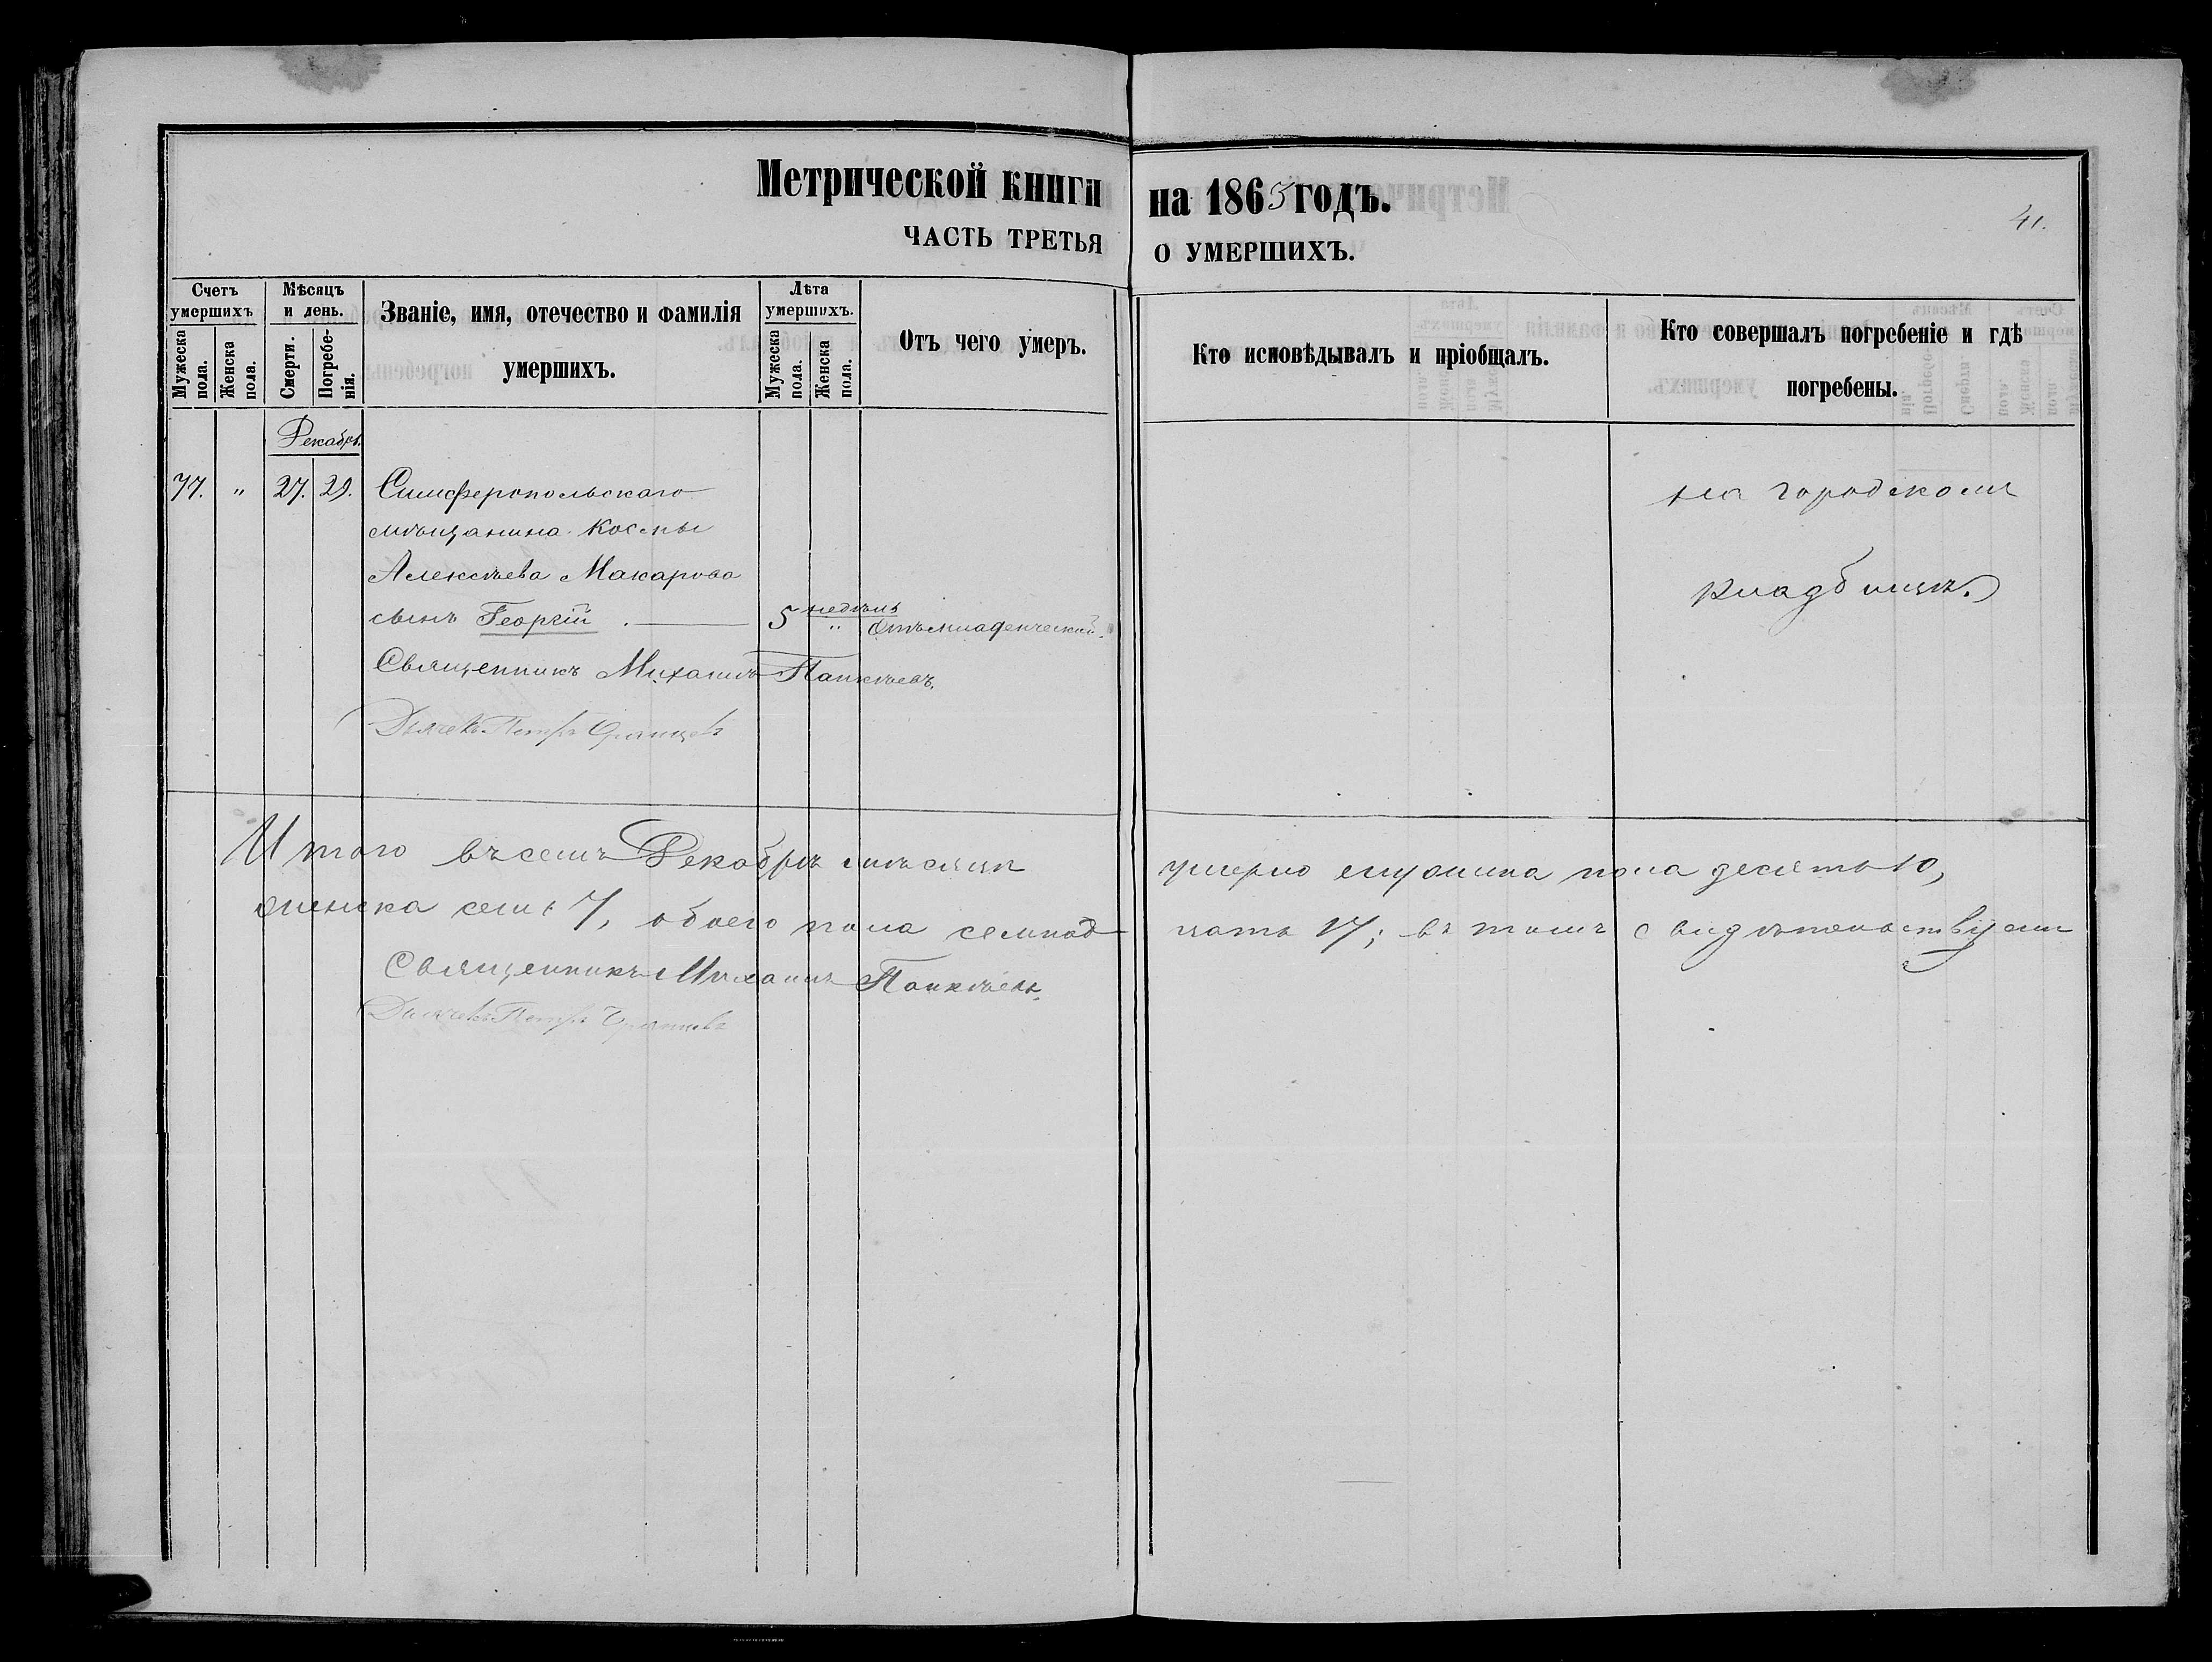 Метрической книги на 1863 годъ.
41.
ЧАСТЬ ТРЕТЬЯ О УМЕРШИХЪ.
Счетъ умершихъ
Мужеска пола.
Женска пола.
Мѣсяцъ и день.
Смерти.
Погребенія.
Званіе, имя, отечество и фамилія умершихъ.
Лѣта умершихъ.
Мужеска пола.
Женска пола.
Отъ чего умеръ.
Кто исповѣдывалъ и пріобщалъ.
Кто совершалъ погребеніе и гдѣ погребены.
Декабрь.
77. " 27. 29. Симферопольскаго
мѣщанина Космы
Алексѣева Макарова
сынъ Георгій . — 5 недѣль " Отъ младенческой.
на городскомъ
кладбищѣ.
Священникъ Михаилъ
Дьячекъ Петръ
Итого въ семъ Декабрѣ мѣсяцѣ умерло мужеска пола десять 10,
женска семь 7, обоего пола семнадцать 17; въ томъ свидѣтельствуем
Священникъ Михаилъ
Дьячекъ Петръ